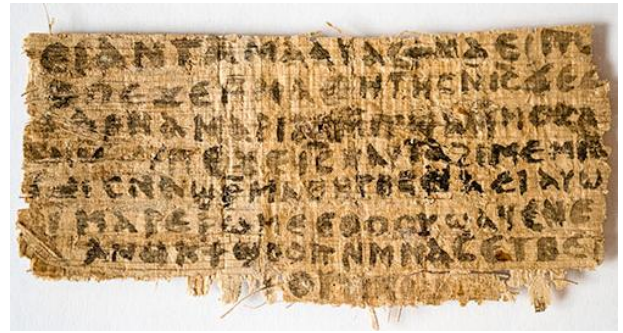 ⲉⲓ ⲁⲛ ⲧⲁⲙⲁⲁⲩ ⲁⲥϯ ⲛⲁⲉⲓ ⲡⲱ
ⲡⲉϫⲉ ⲙⲙⲁⲑⲏⲧⲏⲥ ⲛⲓ̅ⲥ̅ ϫⲉ ⲥ
ⲁⲣⲛⲁ ⲙⲁⲣⲓⲁⲙ ⲙⲡϣⲁ ⲙⲙⲟⲥ ⲁ
ⲡⲉϫⲉ ⲓ̅ⲥ̅ ⲛⲁⲩ ⲧⲁϩⲓⲙⲉ ⲙⲛ
ⲥⲛⲁϣⲣⲙⲁⲑⲏⲧⲏⲥ ⲛⲁⲉⲓ ⲁⲩⲱ
ⲙⲁⲣⲉⲣⲱⲙⲉ ⲉⲑⲟⲟⲩ ϣⲁϥⲉⲛⲉ
ⲁⲛⲟⲕ ϯϣⲟⲟⲡ ⲛⲙⲙⲁⲥ ⲉⲧⲃⲉ